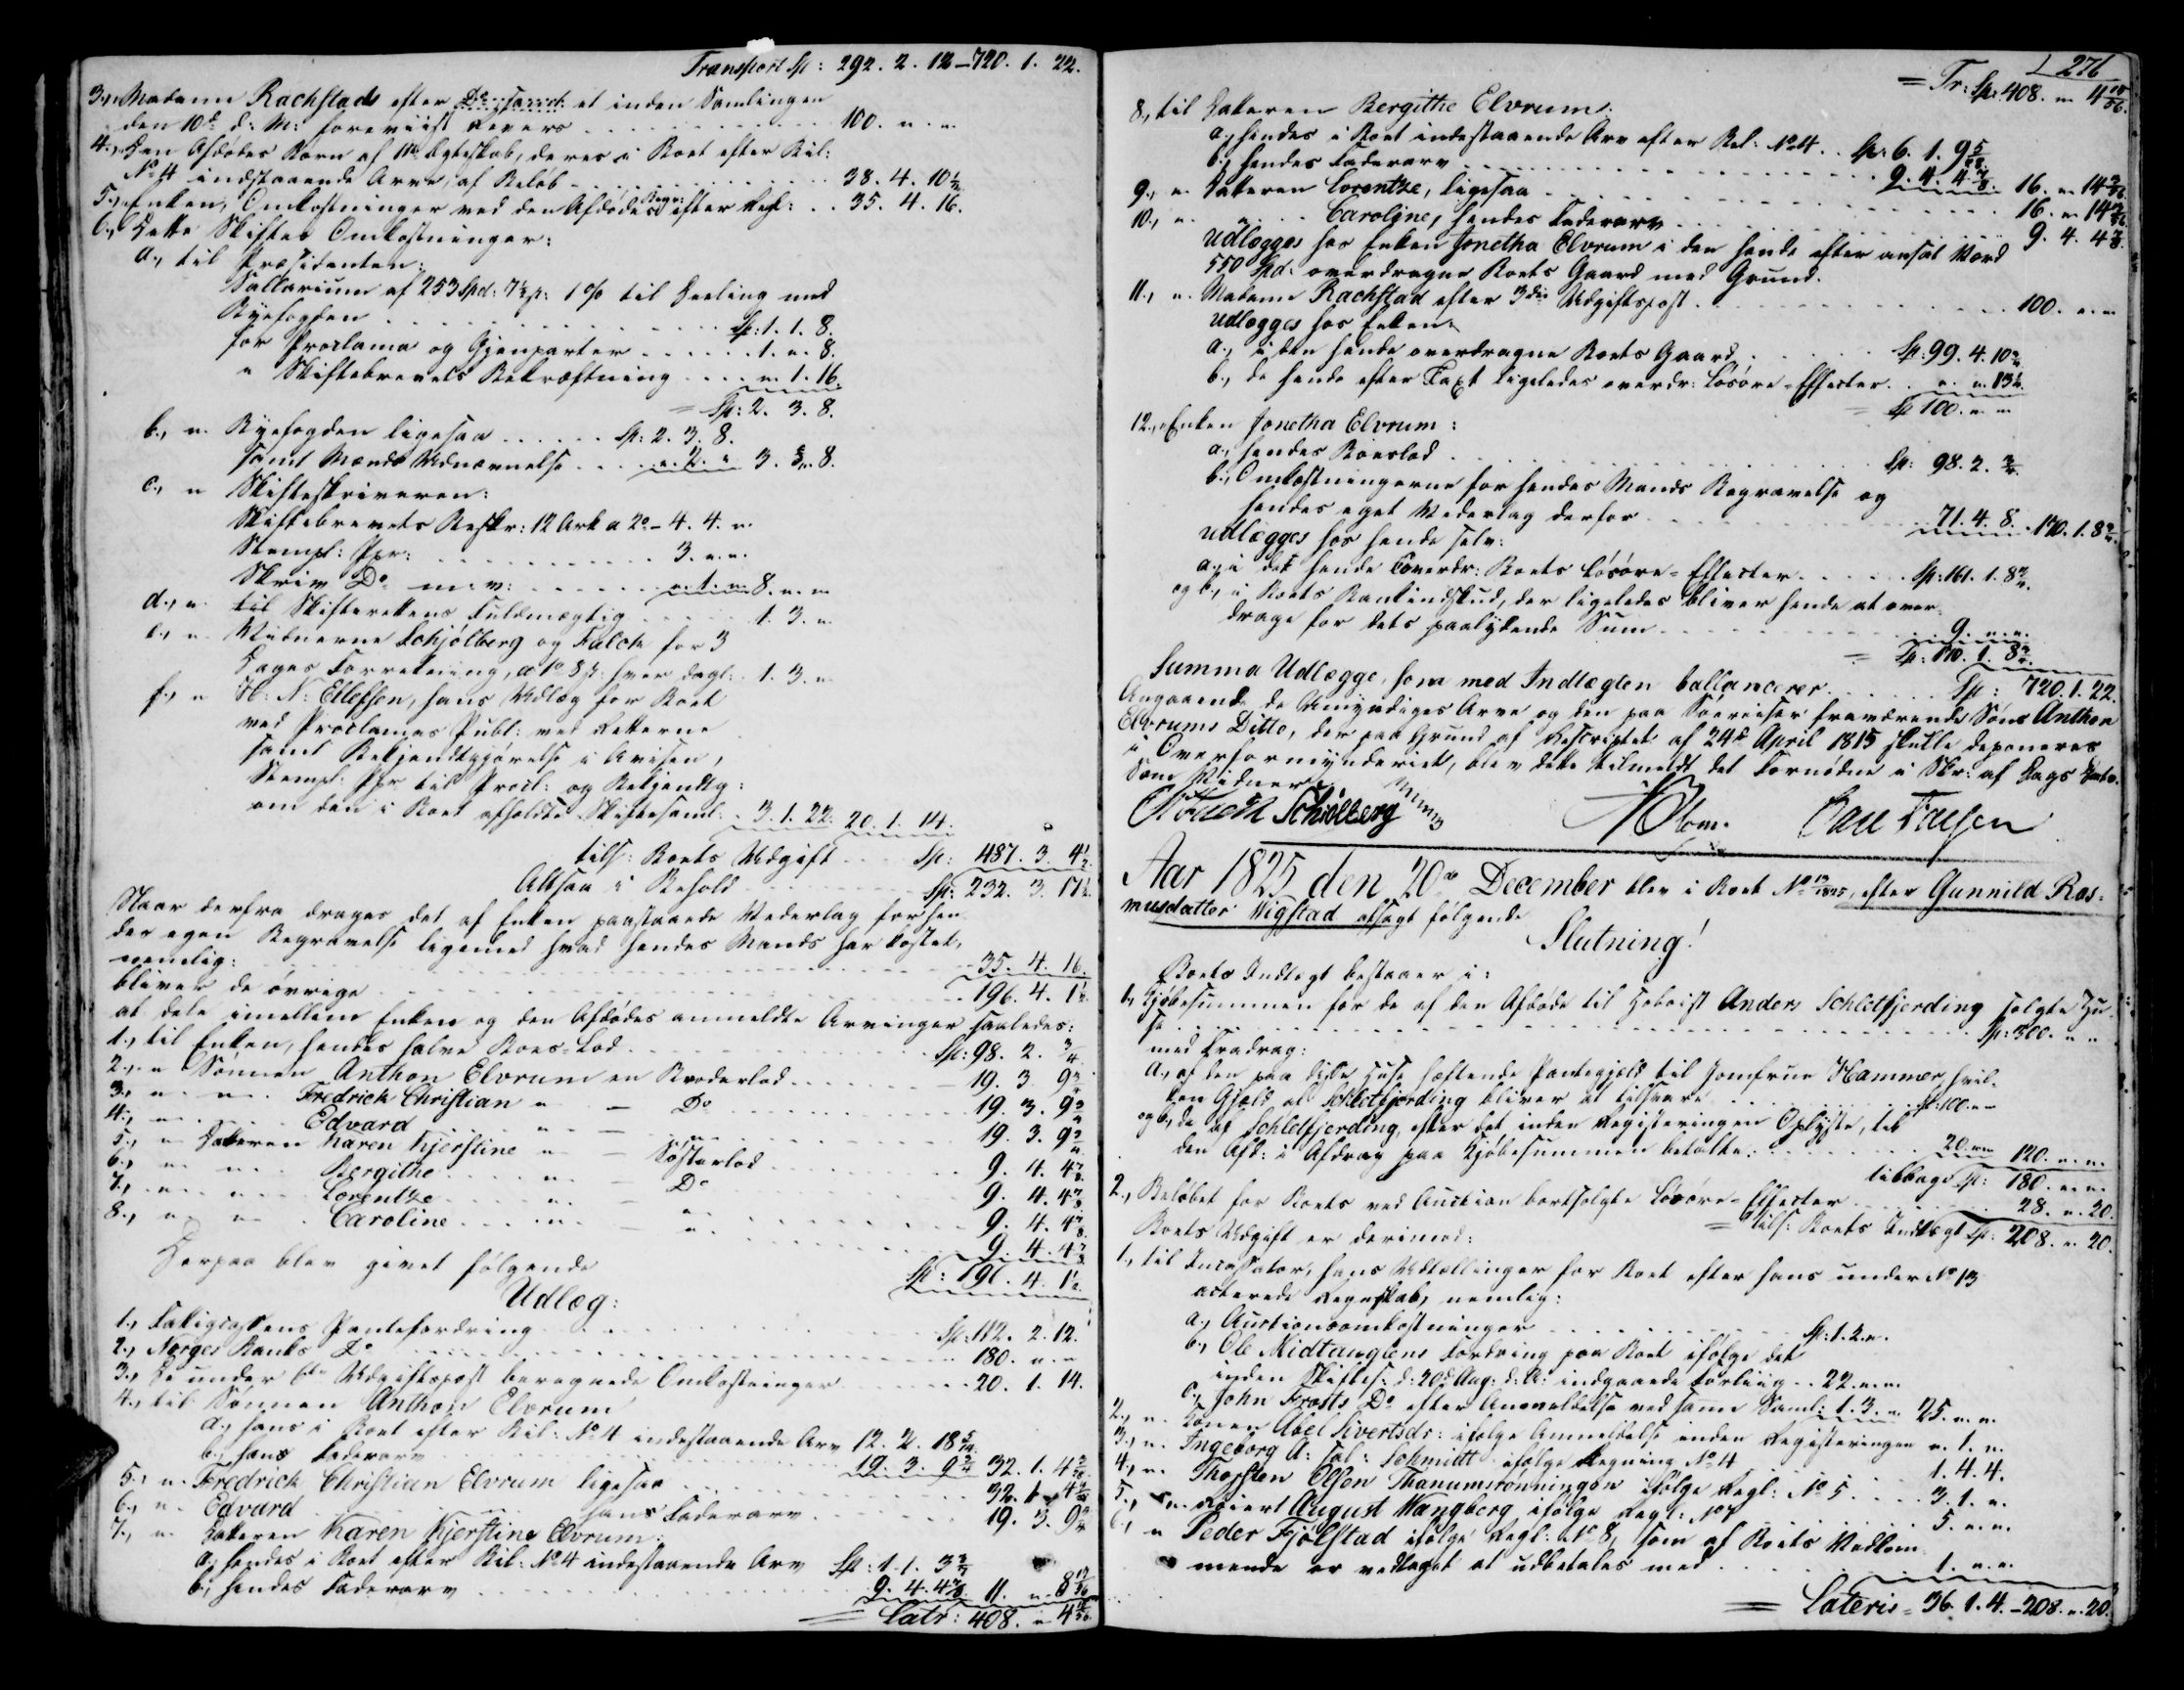 Transport Sp: 292. 2. 12 – 720. 1. 22.
3., Madame Rachstads efter D:o samt et inden Samlingen
den 10de d: M: foreviist Revers 100. " "
4., Den Afdødes Børn af 1ste Ægteskab, deres i Boet efter Bil:
No 4 indestaaende Arv, af Beløb 38. 4. 10½
5., Enken, Omkostninger ved den Afdødes Begr: efter Regl: 35. 4. 16.
6., Dette Skiftes Omkostninger:
a., til Præsidenten:
Sallarium af 253 Spd: 7½ s: 1 % til Deeling med
Byefogden Sp: 1. 1. 8.
for Proclama og Gjenparter 1. " 8.
" Skiftebrevets Bekræftning " 1. 16.
= Sp: 2. 3. 8.
b., " Byefogden ligesaa Sp: 2. 3. 8.
samt Mænds Udnævnelse " 2. " 3. " 8.
c., " Skifteskriveren:
Skiftebrevets Beskr: 12 Ark a 2o – 4. 4. "
Stempl: Ppr: 3. " "
Skriv Do m: v: " 1. " 8. " "
d., " til Skifterettens Fuldmægtig 1. 3. "
e., " Vidnerne Schjølberg og Falch for 3
Dages Forretning, a 1o 8 s: hver dagl: 1. 3. "
f., " N: N: Ellefsen, hans Udlæg for Boet
ved Proclamas Publ: ved Retterne
samt Bekjendtgjørelse i Avisen,
Stempl: Ppr til Procl: og Bekjendtg:
om den i Boet afholdte Skiftesaml: 3. 1. 22. 20. 1. 14.
tils: Boets Udgift Sp: 487. 3. 4½
Altsaa i Behold Sp: 232. 3. 17½
Naar derfra drages det af Enken paastaaede Vederlag for hen
des egen Begravelse ligemed hvad hendes Mands har kostet,
nemlig: 35. 4. 16.
bliver de øvrige 196. 4. 1½
at dele imellem Enken og den Afdødes anmeldte Arvinger saaledes:
1., til Enken, hendes halve Boes-Lod Sp: 98. 2. ¾
2., " Sønnen Anthon Elvrum en Broderlod 19. 3. 9¾
3., " " Fredrich Christian " – Do 19. 3. 9¾
4., " " Edvard " – " 19. 3. 9¾
5., " Datteren Karen Kjerstine " – Søsterlod 9. 4. 4⅞
6., " " Bergithe " – Do 9. 4. 4⅞
7., " " Lorentze " – " 9. 4. 4⅞
8., " " Caroline " – " 9. 4. 4⅞
Sp: 196. 4. 1½
Derpaa blev givet følgende
Udlæg:
1., Fattigcassens Pantefordring Sp: 112. 2. 12.
2., Norges Banks Do 180. " "
3., De under 6te Udgiftspost beregnede Omkostninger 20. 1. 14.
4., til Sønnen Anthon Elvrum
a., hans i Boet efter Bil: No 4 indestaaende Arv 12. 2. 18
b., hans Faderarv 19. 3. 9¾ 32. 1. 4
5., " Fredrich Christian Elvrum ligesaa 32. 1. 4
6., " Edvard hans Faderarv 19. 3. 9¾
7., " Datteren Karen Kjerstine Elvrum:
a., hendes i Boet efter Bil: No 4 indestaaende Arv Sp: 1. 1. 3
b., hendes Faderarv 9. 4. 4⅞ 11. " 8
= Latr: 408. " 4
276
= Tr: Sp: 408. " 4
8., til Datteren Bergithe Elvrum:
a., hendes i Boet indestaaende Arv efter Bil: No 4 Sp: 6. 1. 9
b., hendes Faderarv 9. 4. 4⅞ 16. " 14
9., " Datteren Lorentze, ligesaa 16. " 14
10., " " Caroline, hendes Faderarv 9. 4. 4⅞
udlægges hos Enken Jonetha Elvrum i den hende efter ansat Værd
550 Spd: overdragne Boets Gaard med Grund.
11., " Madame Rachstad efter 3die Udgiftspost 100. " "
udlægges hos Enken:
a., i den hende overdragne Boets Gaard Sp: 99. 4. 10
b., de hende efter Taxt ligeledes overdr: Løsøre-Effecter " " 13
= Sp 100. " "
12., " Enken Jonetha Elvrum:
a., hendes Boeslod Sp: 98. 2. ¾
b., Omkostningerne for hendes Mands Begravelse og
hendes eget Vederlag derfor 71. 4. 8. 170. 1. 8¾
udlægges hos hende selv:
a., i det hende overdr: Boets Løsøre-Effecter Sp: 161. 1. 8¾
og b., i Boets Bankindskud, der ligeledes bliver hende at over-
drage for dets paalydende Sum 9. " "
= Sp: 170. 1. 8¾
Summa Udlægge, som med Indtægten ballancerer Sp: 720. 1. 22.
Angaaende de Umyndiges Arv og den paa Søereiser fraværende Søns Anthon
Elvrums Ditto, der paa Grund af Rescriptet af 24de April 1815 skulle deponeres
i Overformynderiet, blev dette tilmeldt det Fornødne i Skr: af Dags Dato.
Som Vidner:
Schiølberg Blom. Carl Falsen
Aar 1825 den 20de December blev i Boet No 13/1825, efter Gunnild Ras-
musdatter Wigstad afsagt følgende
Slutning!
Boets Indtægt bestaaer i:
1., Kjøbesummen for de af den Afdøde til Hoboist Anders Schletfjerding solgte Hu-
se Sp: 300. " "
med Fradrag:
a., af den paa disse Huse hæftende Pantegjeld til Jomfrue Hammer, hvil-
ken Gjeld af Schletfjerding bliver at tilsvare Sp: 100. " "
og b., de af Schletfjerding, efter det inden Registeringen Oplyste, til
den Afd: i Afdrag paa Kjøbesummen betalte: 20. " " 120. " "
tilbage Sp: 180. " "
2., Beløbet for Boets ved Auction bortsolgte Løsøre-Effecter 28. " 20.
= Tils: Boets Indtægt Sp: 208. " 20.
Boets Udgift er derimod:
1., til Incassator, hans Udtællinger for Boet efter hans under No 13
acterede Regnskab, nemlig:
a., Auctionsomkostninger Sp: 1. 2. "
b., Ole Midtangens Fordring paa Boet ifølge det
inden Skiftes: d: 20de Aug: d: A: indgaaede Forliig 22. " "
c., John Frosts Do efter Anmeldelse ved samme Saml: 1. 3. " 25. " "
2., " Konen Abel Sivertsdr: ifølge Anmeldelse inden Registeringen " 1. "
3., " Ingeborg A: sal: Schmidtt ifølge Regning No 4 1. 4. 4.
4., " Thorsten Olsen Thanumsrønningen ifølge Regl: No 5 3. 1. "
5., " August Wangberg ifølge Regl: No 7 5. " "
6., " Peder Fjølstad ifølge Regl: No 8, som af Boets Vedkom-
mende er vedtaget at udbetales med 1. " "
= Lateris = 36. 1. 4. – 208. " 20.